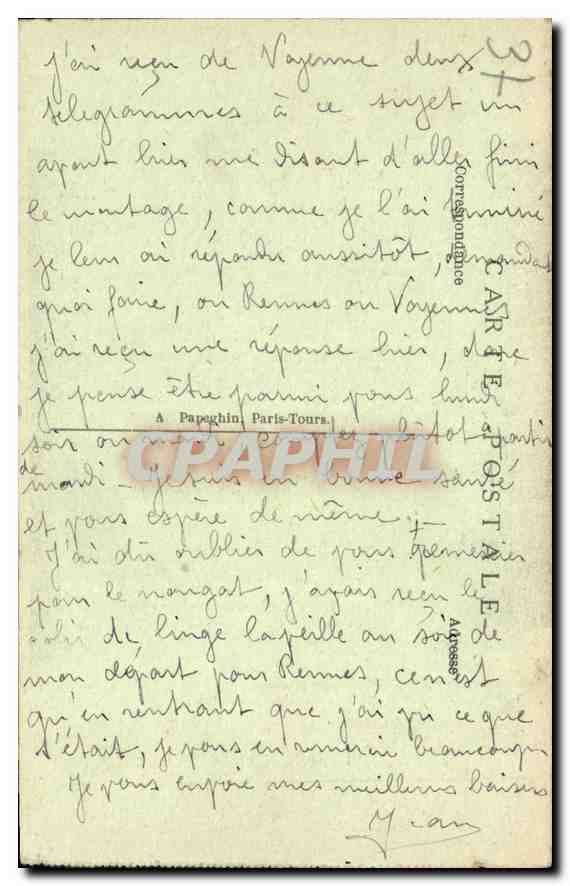 31
j'ai reçu de Voyenne deux
télégrammes à ce sujet un
avant hier me disant d'aller finir
le montage, comme je l'ai terminé
je leur ai répondu aussitôt, demandant
quoi faire, ou Rennes ou Voyenne
j'ai reçu une réponse hier, donc
je pense être parmi vous lundi
soir ou mardi comptez plutôt partir
de mardi - Je suis en bonne santé
et vous espère de même. +
J'ai dû oublier de vous remercier
pour le nougat, j'avais reçu le
colis de linge la veille au soir de
mon départ pour Rennes, ce n'est
qu'en rentrant que j'ai vu ce que
s'était, je vous en remercie beaucoup
Je vous envoie mes meilleurs baisers
Jean
Correspondance
CARTE POSTALE
Adresse
A Papeghin, Paris-Tours.
CPAPHIL